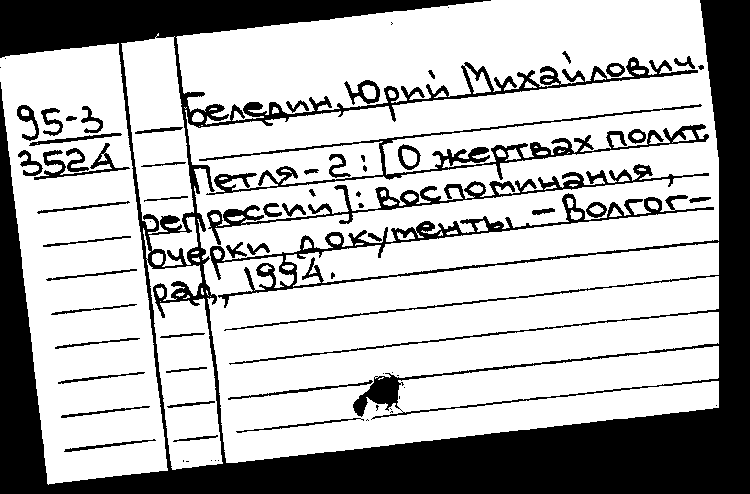 95-3
3524
Беледин, Юрий Михайлович.
Петля-2: [О жертвах полит.
репрессий]: Воспоминания,
очерки, документы.- Волгог-
рад, 1994.